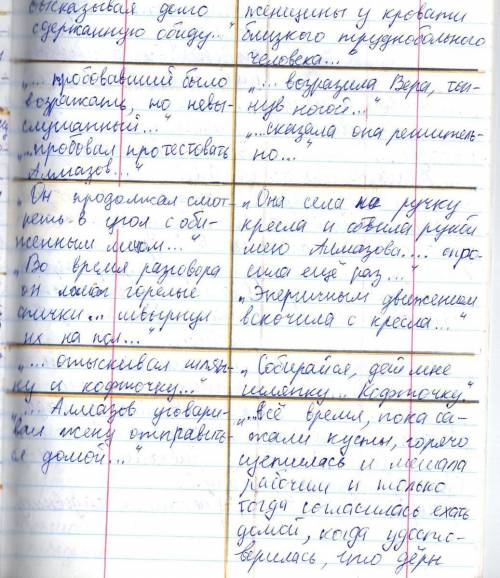 высказывая демо
сдержанную обиду..."
женщины у кровати
близкого труднобольного
человека..."
"... пробовавший было
возражать, но невы-
слушанный..."
"... пробовал протестовать
Алмазов..."
"... возразила Вера, топ-
нув ногой..."
"... сказала она решитель-
но..."
"Он продолжал смот-
реть в угол с оби-
женным лицом..."
"Во время разговора
он ломал горелые
спички... швырнул
их на пол..."
"Она села на ручку
кресла и обвила рукой
шею Алмазова... спро-
сила ещё раз..."
"Энергичным движением
вскочила с кресла..."
"... отыскивал шляп-
ку и кофточку..."
"Собирайся, дай мне
шляпку... Кофточку."
"... Алмазов уговари-
вал жену отправить-
ся домой..."
"...Всё время, пока са-
жали кусты, горячо
суетилась и мешала
рабочим и только
тогда согласилась ехать
домой, когда удосто-
верилась, что дёрн